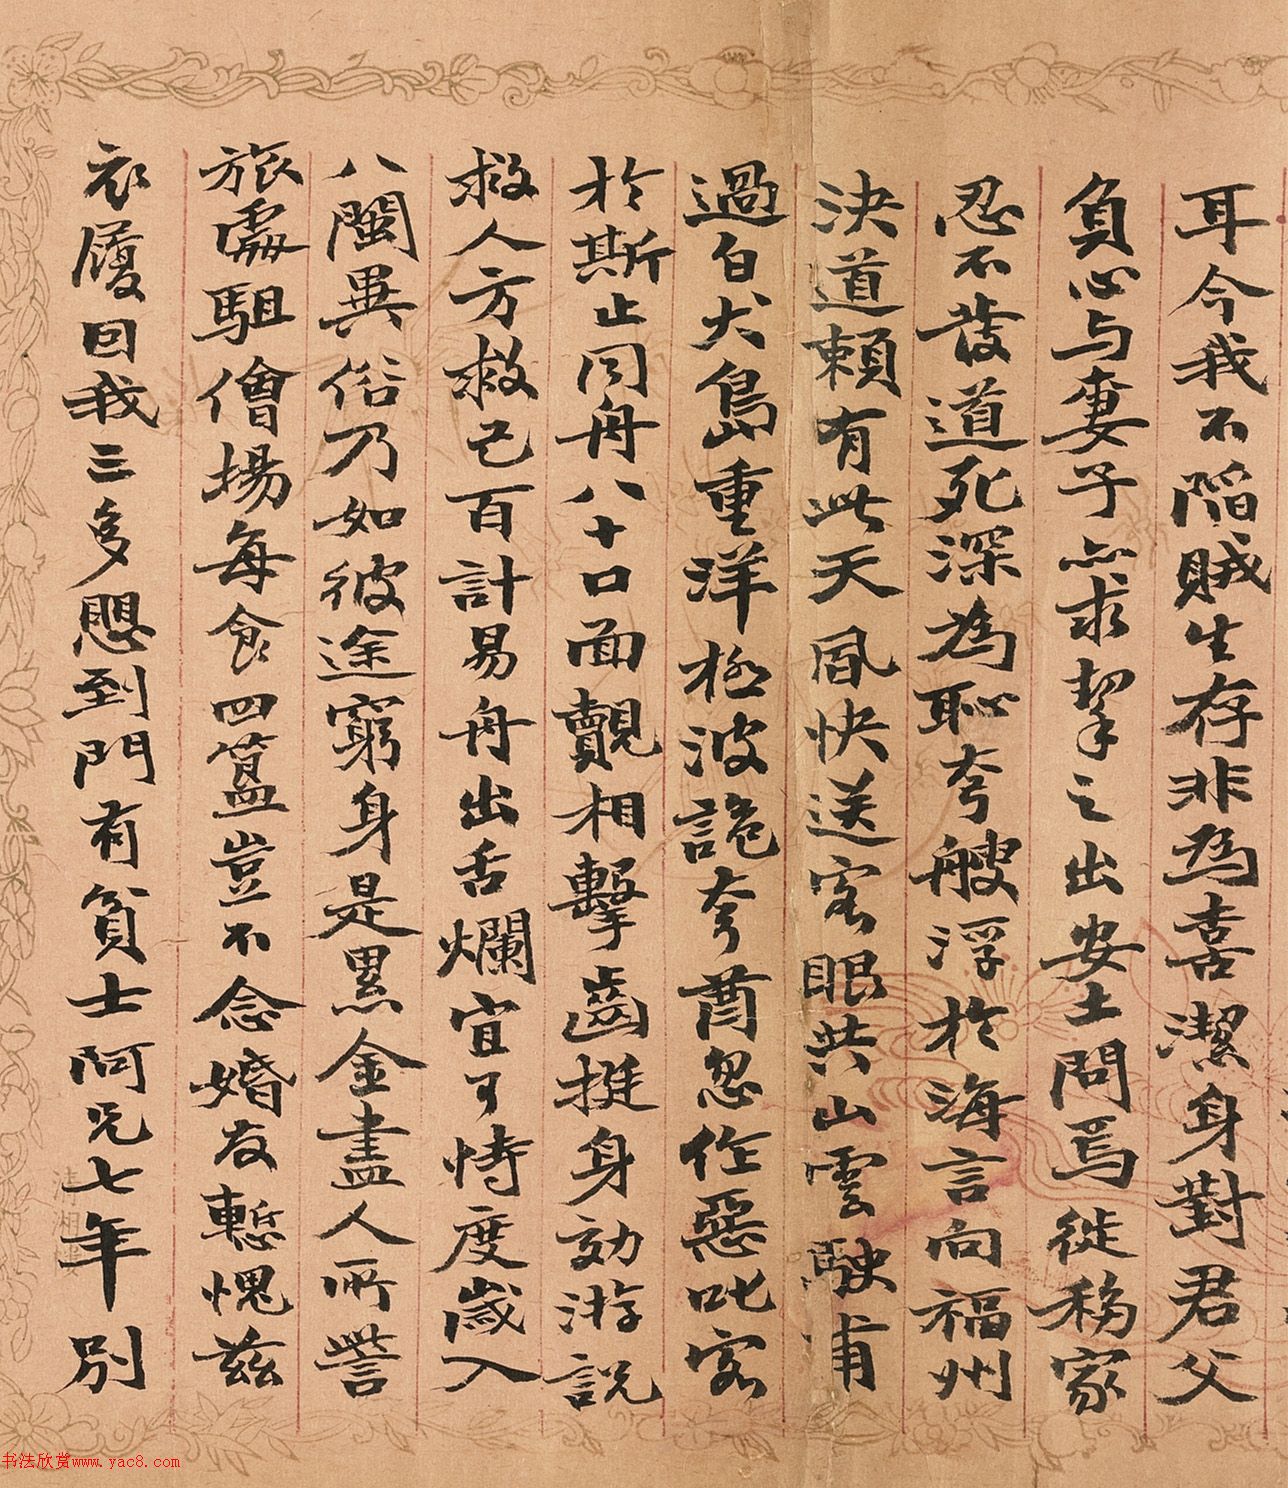 耳今我不陷賊生存非為喜潔身對君父
負心与妻子亦求挈之出安土問焉徙移家
忍不發道死深為恥夸艘浮於海言向福州
決道賴有此天風快送客眼共山雲駛甫
過白犬島重洋極波詭夸酋忽作惡叱客
於斯止同舟八十口面覿相擊齒挺身効游說
救人方救己百計易舟出舌爛宜可恃度歲入
八閩異俗乃如彼途窮身是累金盡人所訾
旅處駔儈場每食四簋豈不念婚友慙愧茲
衣履回我三多愳到門有貧士阿兄七年別
书法欣赏www.yac8.com